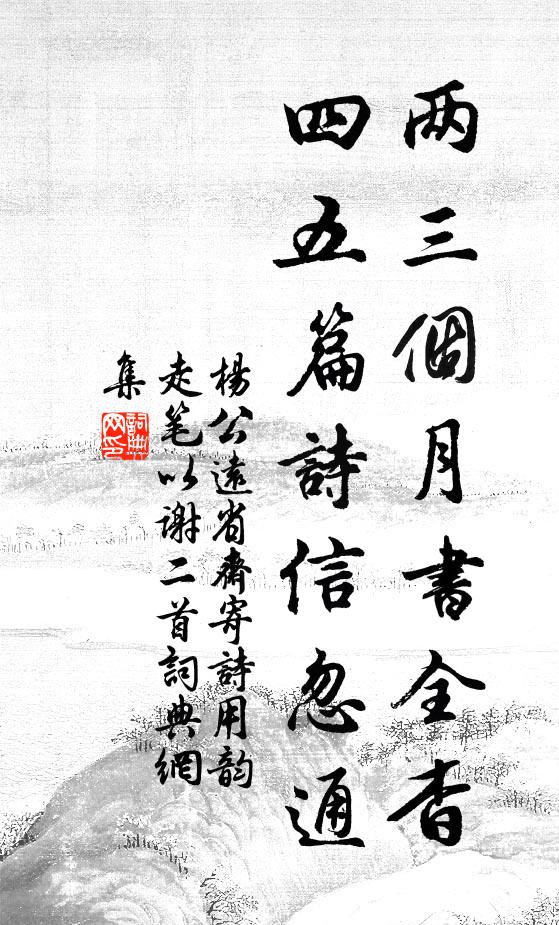 两三個月書全杳
四五篇詩信忽通
楊公遠省齋寄詩用韵
走笔以谢二首詞典網
集
詞典
网印